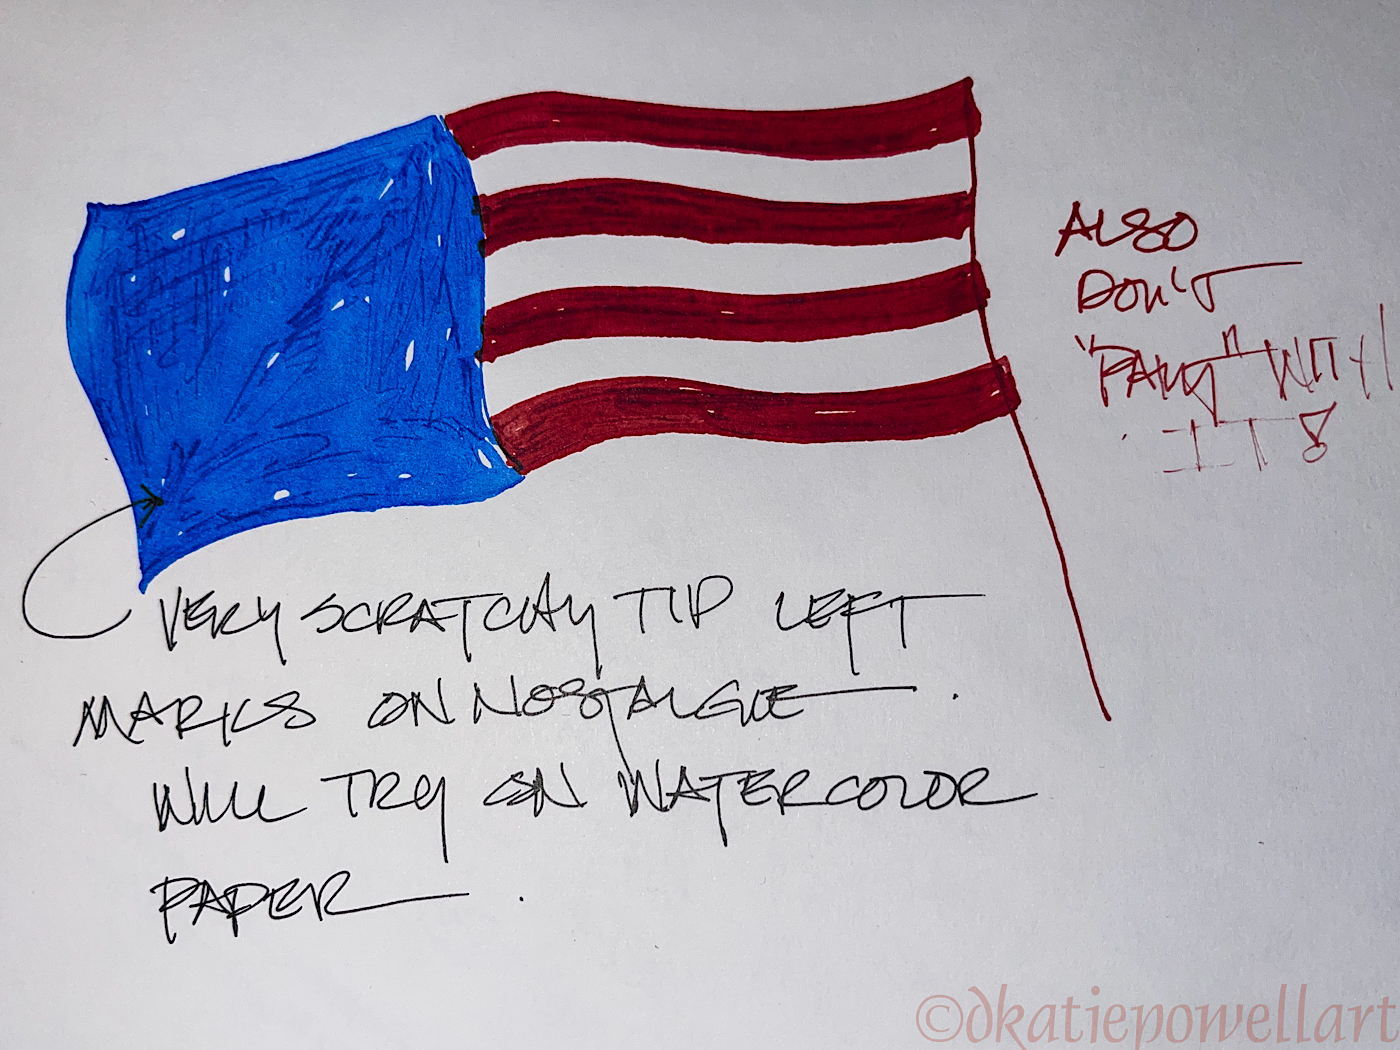 ALSO
DON'T
"PAINT" WITH
IT
VERY SCRATCHY TIP LEFT
MARKS ON NOSTALGIE.
WILL TRY ON WATERCOLOR
PAPER.
©dkatiepowellart